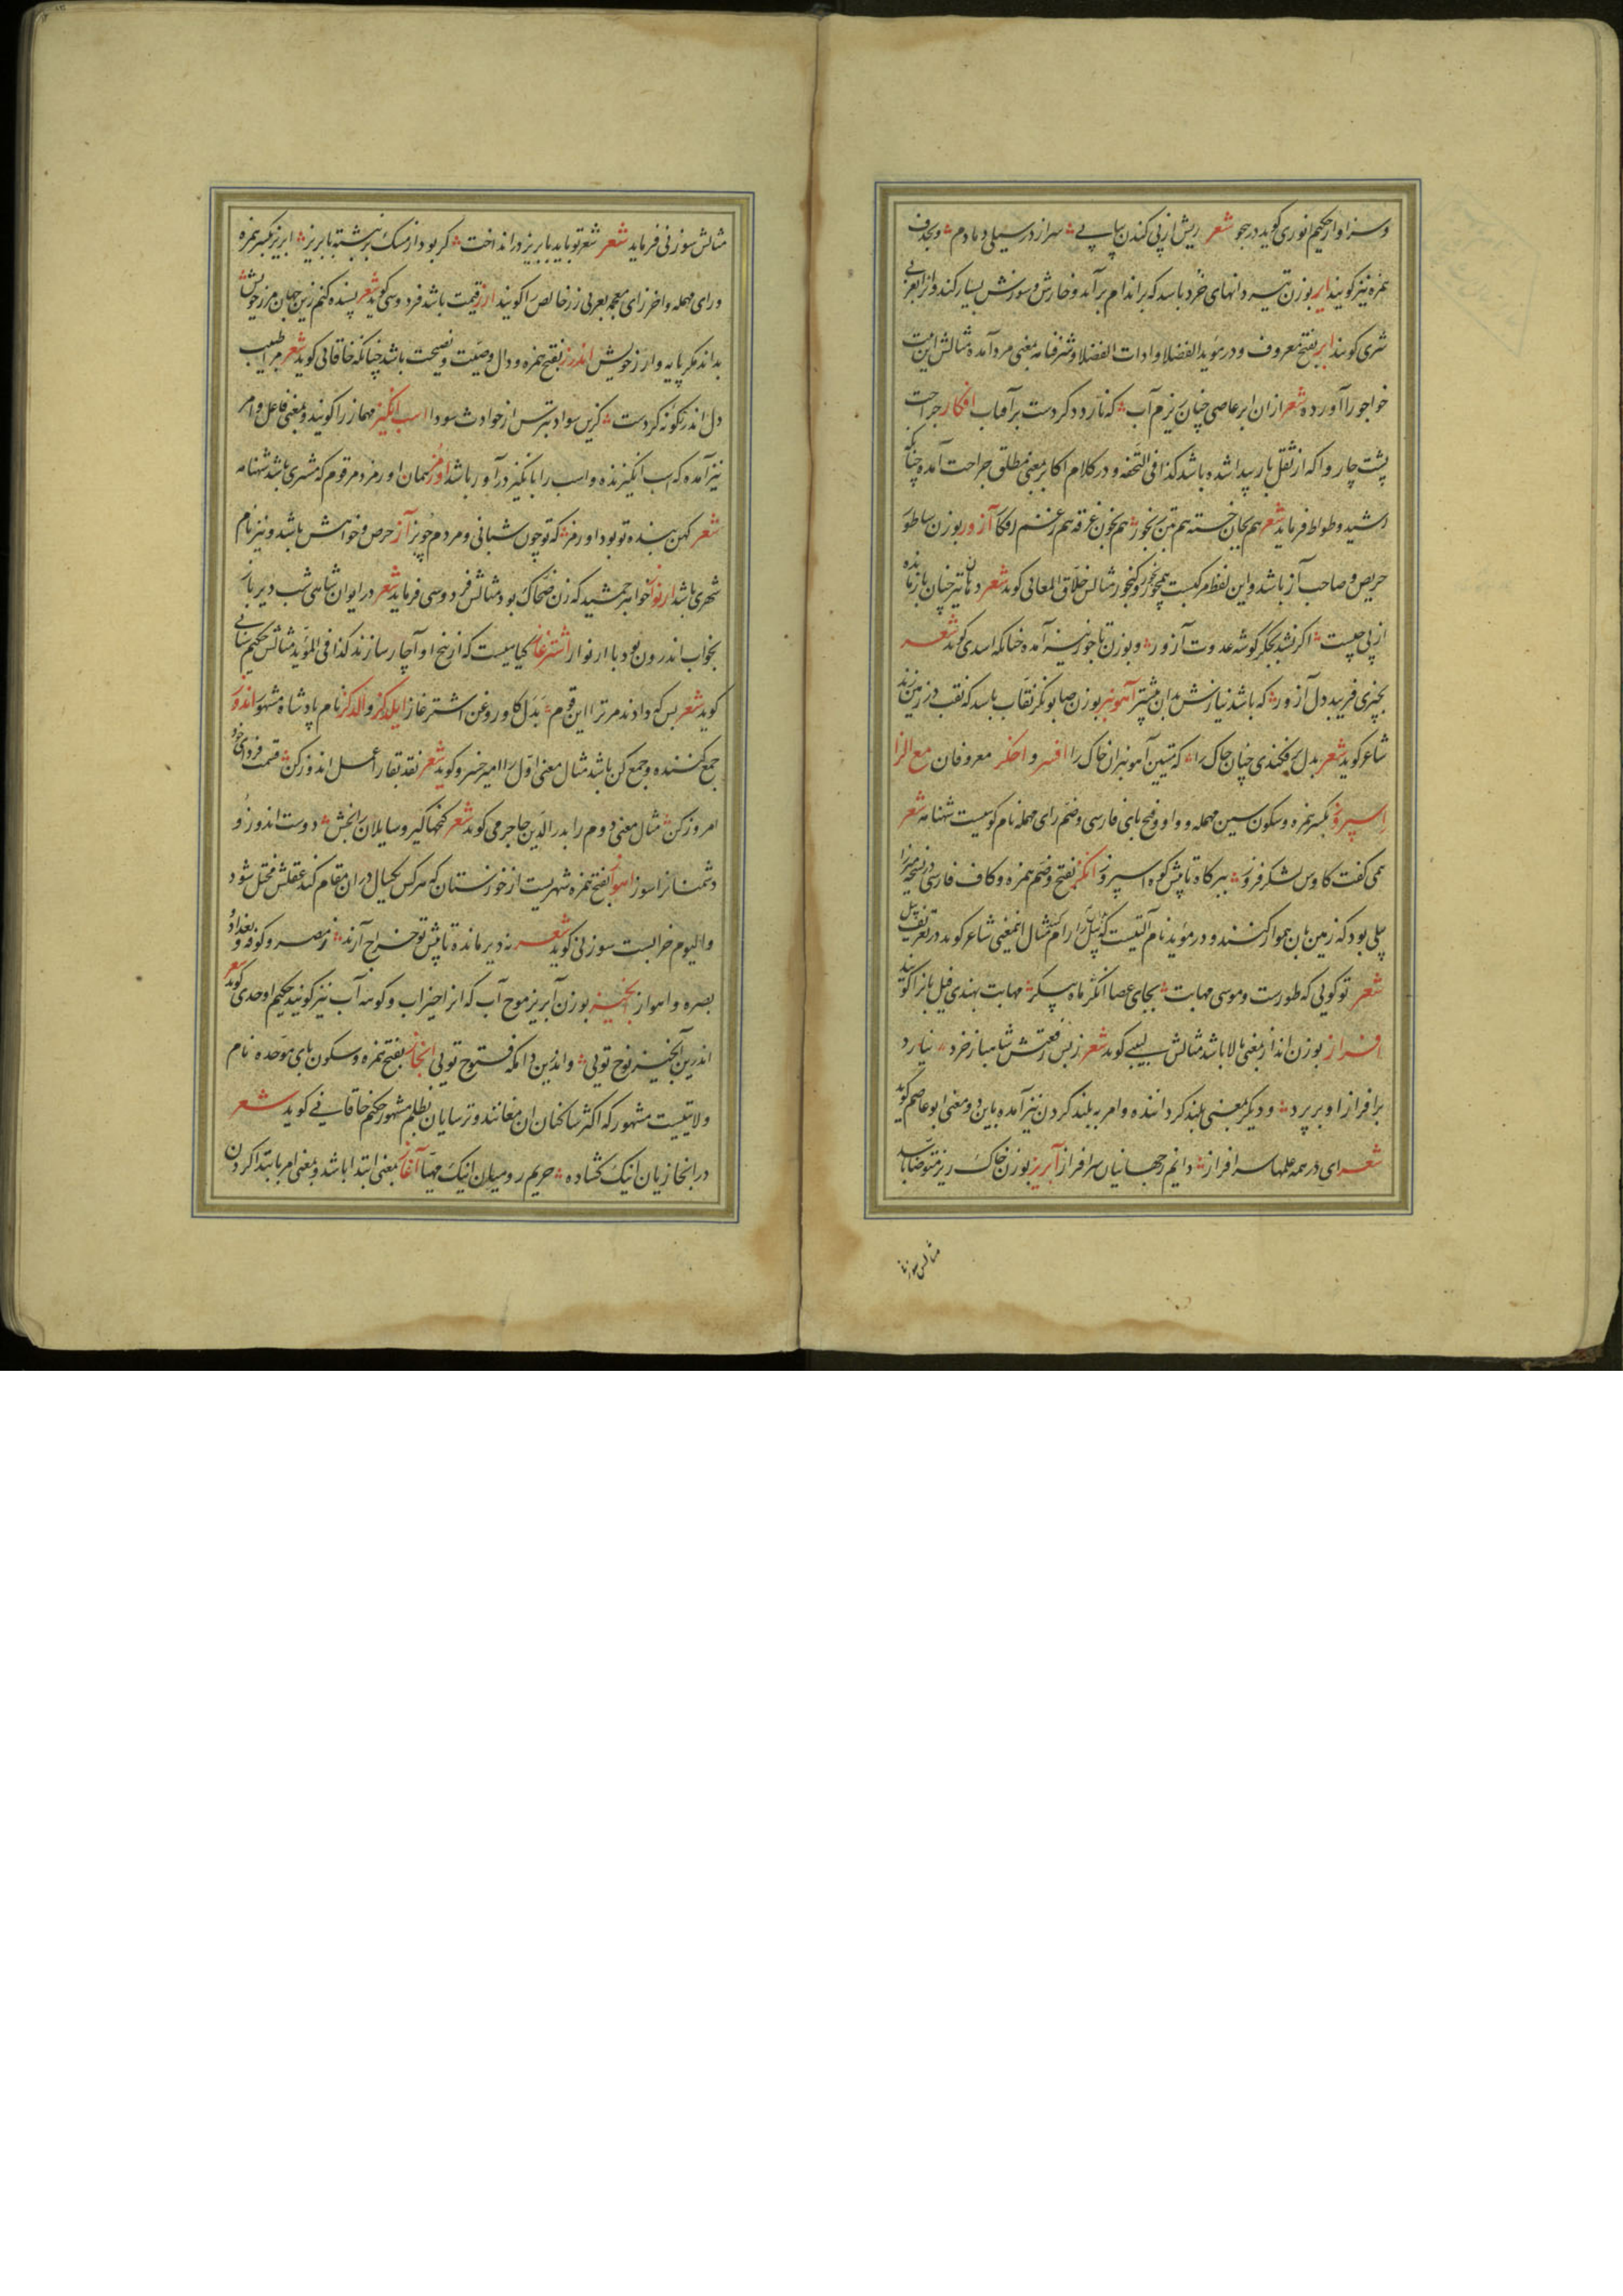 و سزاوار حکیم انوری کوید در هجو شعر ریش از پی کندن پیاپی ؞ سر از در سیلی دمادم ؞ و بحذف
همزه نیز کویند ایر بوزن تیر دانهای خرد باشد که بر اندام برآید و خارش و سوزش بسیار کند و آنرا بعربی
شری کویند ابر بفتح معروف و در مؤید الفضلا و ادات الفضلا و شرفنامه بمعنی مرد آمده مثالش این بیت
خواجو را آورده شعر از ان ابر عاصی چنان ریزم آب ؞ که نارد دکر دست بر آفتاب افکار جراحت
پشت چاروا که از ثقل بار پیدا شده باشد کذا فی التحفه و در کلام اکابر بمعنی مطلق جراحت آمده چنانکه
رشید وطواط فرماید شعر هم بجان خسته هم بتن رنجور ؞ هم بخون غرقه هم ز غم افکار آزور بوزن ساطور
حریص و صاحب آز باشد و این لفظ مرکبست همچو رنجور و کنجور مثالش خلاق المعانی کوید شعر دهان تیر چنان باز مانده
از پی چیست ؞ اکر نشد بجکر کوشه عدوت آزور ؞ و بوزن تاجور نیز آمده چنانکه اسدی کوید شعر
بچیزی فریبد دل آزور ؞ که باشد نیازش بدان بیشتر آهونبر بوزن صابونکر نقاب باشد که نقب در زمین زند
شاعر کوید شعر بدل برفکندی چنان چاک را ؞ که متین آهونبران خاک را افسر و اخکر معروفان مع الزا
اسپروز بکسر همزه و سکون سین مهمله و واو و فتح بای فارسی و ضم رای مهمله نام کوهیست شهنامه شعر
همی کفت کاوس لشکر فروز ؞ ببر کاه تا پیش کوه اسپروز انکژ بفتح و ضم همزه و کاف فارسی در نسخه میرزا
بیلی بود که زمین بان هموار کنند و در مؤید نام آلتیست که پیل را رام کند مثال اینمعنی شاعر کوید در تعریف پیل
شعر تو کویی که طورست و موسی مهابت ؞ بجای عصا انکژ ماه پیکر ؞ مهابت بهندی فیل بانرا کویند
افراز بوزن انداز بمعنی بالا باشد مثالش لبیبی کوید شعر ز بس رفعتش شاهباز خرد ؞ نیارد
بر افراز او بر پرد ؞ و دیکر بمعنی بلند کرداننده و امر به بلند کردن نیز آمده باین دو معنی ابوعاصم کوید
شعر ای در همه علمها سرافراز ؞ دانم ز جهانیان سرافراز آبریز بوزن خاک ریز متوضا باشد
مثالش سوزنی
مثالش سوزنی فرماید شعر شعر تو باید بابریز در انداخت ؞ کر بود از مشک بر نبشته بابریز ؞ ابریز بکسر همزه
و رای مهمله و اخر زای معجمه بعربی زر خالص را کویند ارز قیمت باشد فردوسی کوید شعر پسنده کنم زین جهان مرز خویش
بداند مکر پایه و ارز خویش اندرز بفتح همزه و دال وصیت و نصیحت باشد چنانکه خاقانی کوید شعر مرا طبیب
دل اندر کونه کردست ؞ کزین سواد بترس از حوادث سودا اسب انکیز مهماز را کویند و بمعنی فاعل و امر
نیز آمده که اسب انکیزنده و اسب را بانکیز در آور باشد اورمز همان اورمزد مرقوم که مشتری باشد شهنامه
شعر کهن بنده تو بود اورمز ؞ که تو چون شبانی و مردم چو بز آز حرص و خواهش باشد و نیز نام
شهری باشد ارنواز خواهر جمشید که زن ضحاک بود مثالش فردوسی فرماید شعر در ایوان شاهی شب دیر باز
بخواب اندرون بود با ارنواز اشترغاز کیاهیست که از بیخ او آچار سازند کذا فی المؤید مثالش حکیم سنائی
کوید شعر بس که دادند مر ترا این قوم ؞ بدل کاو روغن اشترغاز ایلدکز و الدکز نام پادشاه مشهور اندوز
جمع کننده و جمع کن باشد مثال معنی اول را امیر خسرو کوید شعر نقد بقا را عمل اندوز کن ؞ قسمت فردای خود
امروز کن ؞ مثال معنی دوم را بدرالدین جاجرمی کوید شعر کنجها کیر و سایلان را بخش ؞ دوست اندوز و
دشمنانرا سوز اهواز بفتح همزه شهریست از خوزستان که هر کس یکسال در ان مقام کند عقلش مختل شود
و الیوم خرابست سوزنی کوید شعر نه دیر مانده تا پیش تو خراج آرند ؞ ز مصر و کوفه و بغداد و
بصره و اهواز آبخیز بوزن آبریز موج آب که انرا خیزاب و کوهه آب نیز کویند حکیم اوحدی کوید شعر
اندرین آبخیز نوح تویی ؞ و اندرین دامکه فتوح تویی ابخاز بفتح همزه و سکون بای موحده نام
ولایتیست مشهور که اکثر ساکنان ان مغانند و ترسایان بظلم مشهور حکیم خاقانی کوید شعر
در ابخازیان اینک کشاده ؞ حریم رومیان اینک مهیا آغاز بمعنی ابتدا باشد و بمعنی امر بابتدا کردن